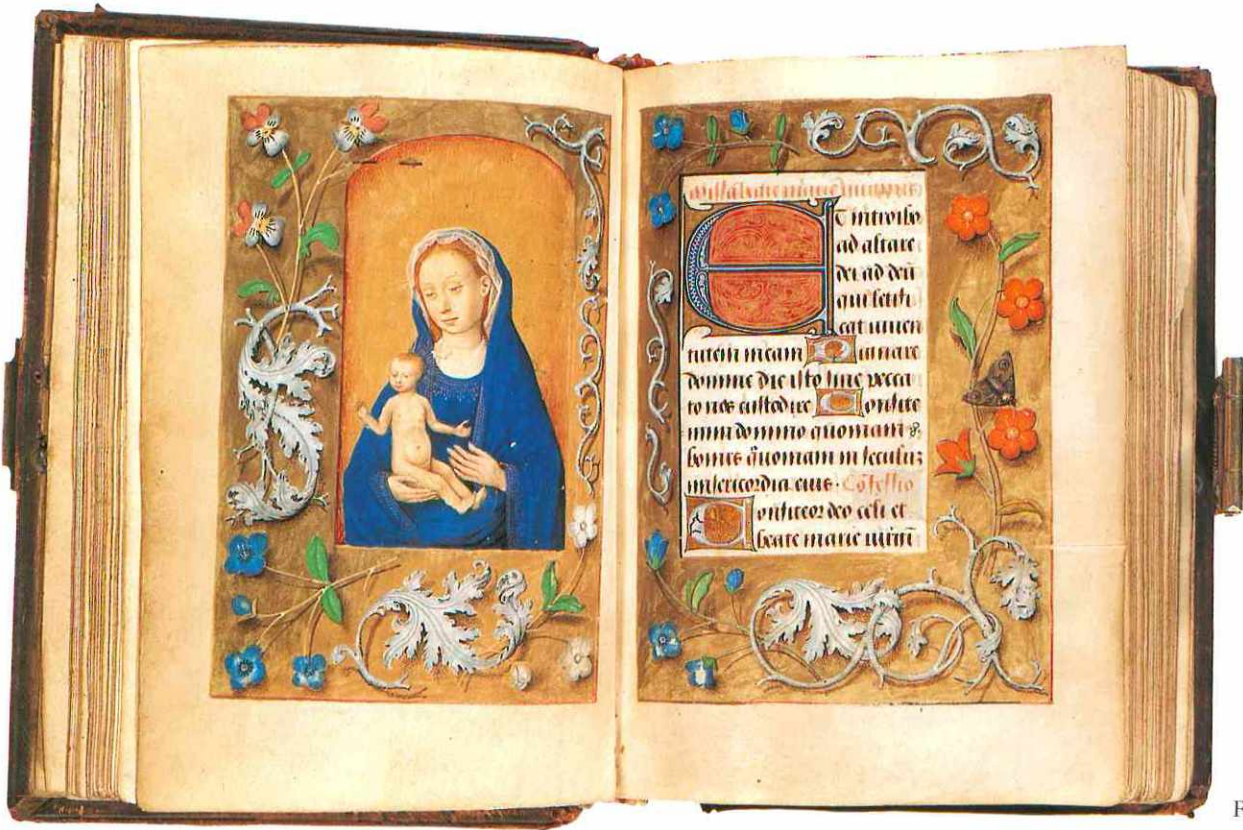 Missa beate marie virginis
Et introibo
ad altare
dei ad deū
qui letifi
cat iuuen
tutem meam Dignare
domine die isto sine pecca
to nos custodire Confite
mini domino quoniam
bonus quoniam in seculuz
misericordia eius · Cōfessio
Confiteor deo celi et
beate marie
F